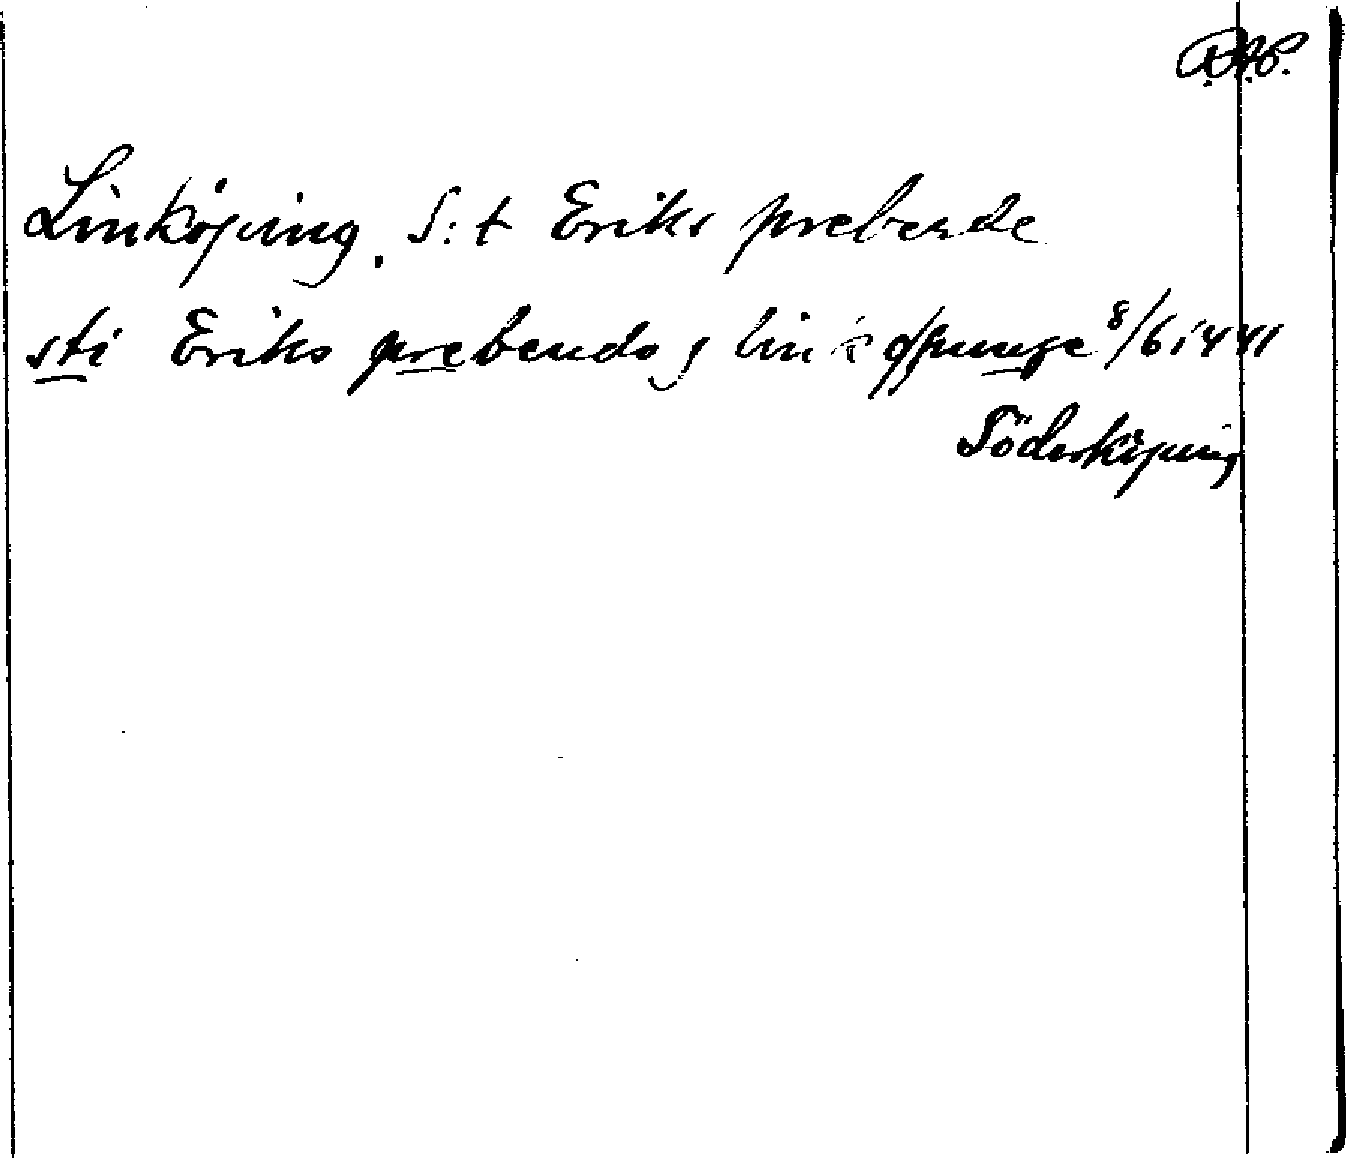 R.A.P.
Linköping. S:t Eriks prebende
sti Eriks prebendo j linköpunge 8/6 1441
Söderköping